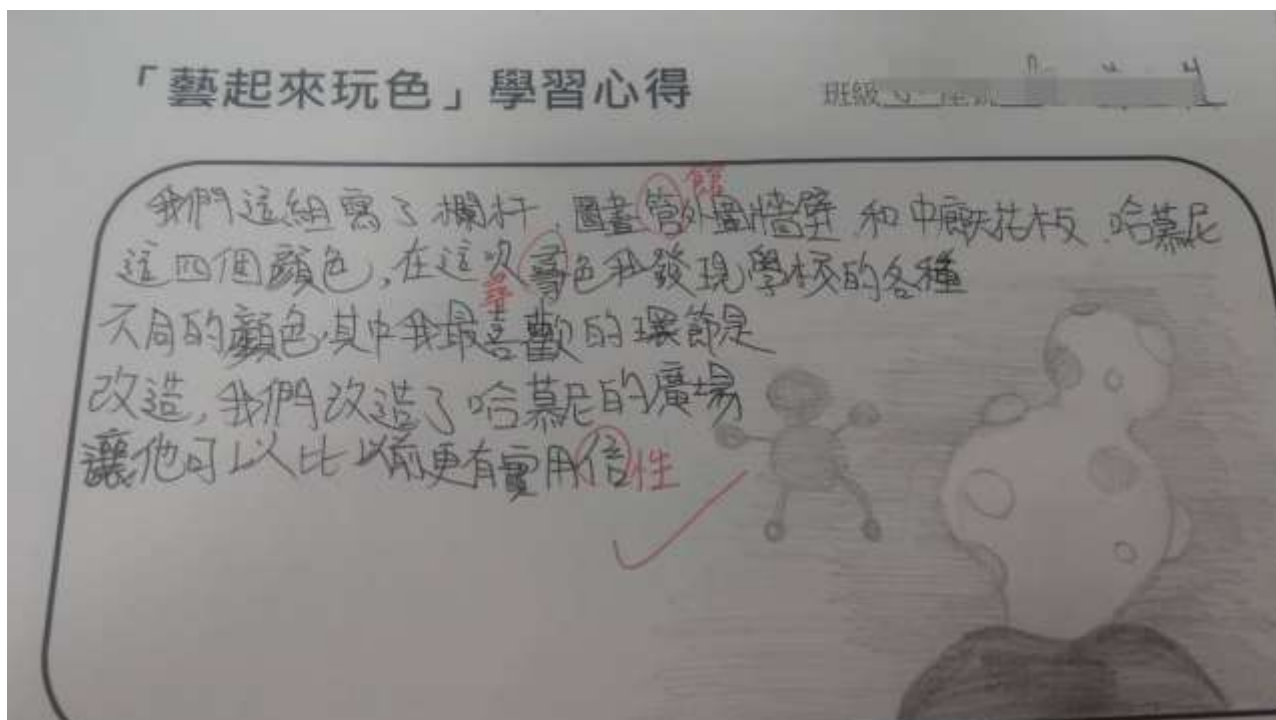 「藝起來玩色」學習心得
班級
館
我們這組寫了欄杆、圖書管外圍牆壁 和中廊天花板、哈慕尼
這四個顏色,在這次尋色我發現學校的各種
尋
不同的顏色,其中我最喜歡的環節是
改造,我們改造了哈慕尼的廣場
讓他可以比以前更有實用信性